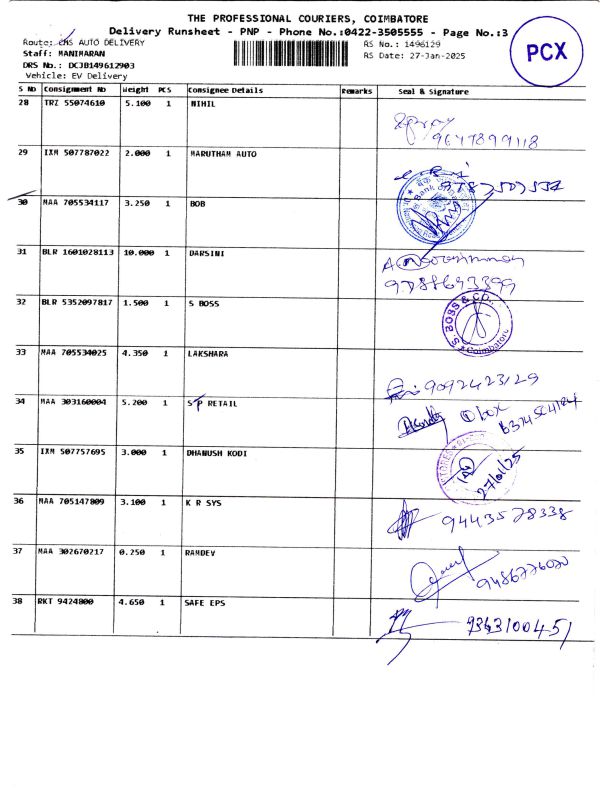 THE PROFESSIONAL COURIERS, COIMBATORE
Delivery Runsheet - PNP - Phone No.:0422-3505555 - Page No.:3
Route: CMS AUTO DELIVERY
Staff: MANIMARAN
DRS No.: DCJB149612903
Vehicle: EV Delivery
RS No.: 1496129
RS Date: 27-Jan-2025
PCX
S No Consignment No Weight PCS Consignee Details Remarks Seal & Signature
28 TRZ 55074610 5.100 1 NIHIL
9677899118
29 IXM 507787022 2.000 1 MARUTHAM AUTO
30 MAA 705534117 3.250 1 BOB
31 BLR 1601028113 10.000 1 DARSINI
9788693399
32 BLR 5352097817 1.500 1 S BOSS
S. BOSS & CO., Coimbatore
33 MAA 705534025 4.350 1 LAKSHARA
9092423129
34 MAA 303160004 5.200 1 S P RETAIL
1 box
35 IXM 507757695 3.000 1 DHANUSH KODI
27/01/25
36 MAA 705147809 3.100 1 K R SYS
9443578338
37 MAA 302670217 0.250 1 RAMDEV
9486776020
38 RKT 9424800 4.650 1 SAFE EPS
9363100451